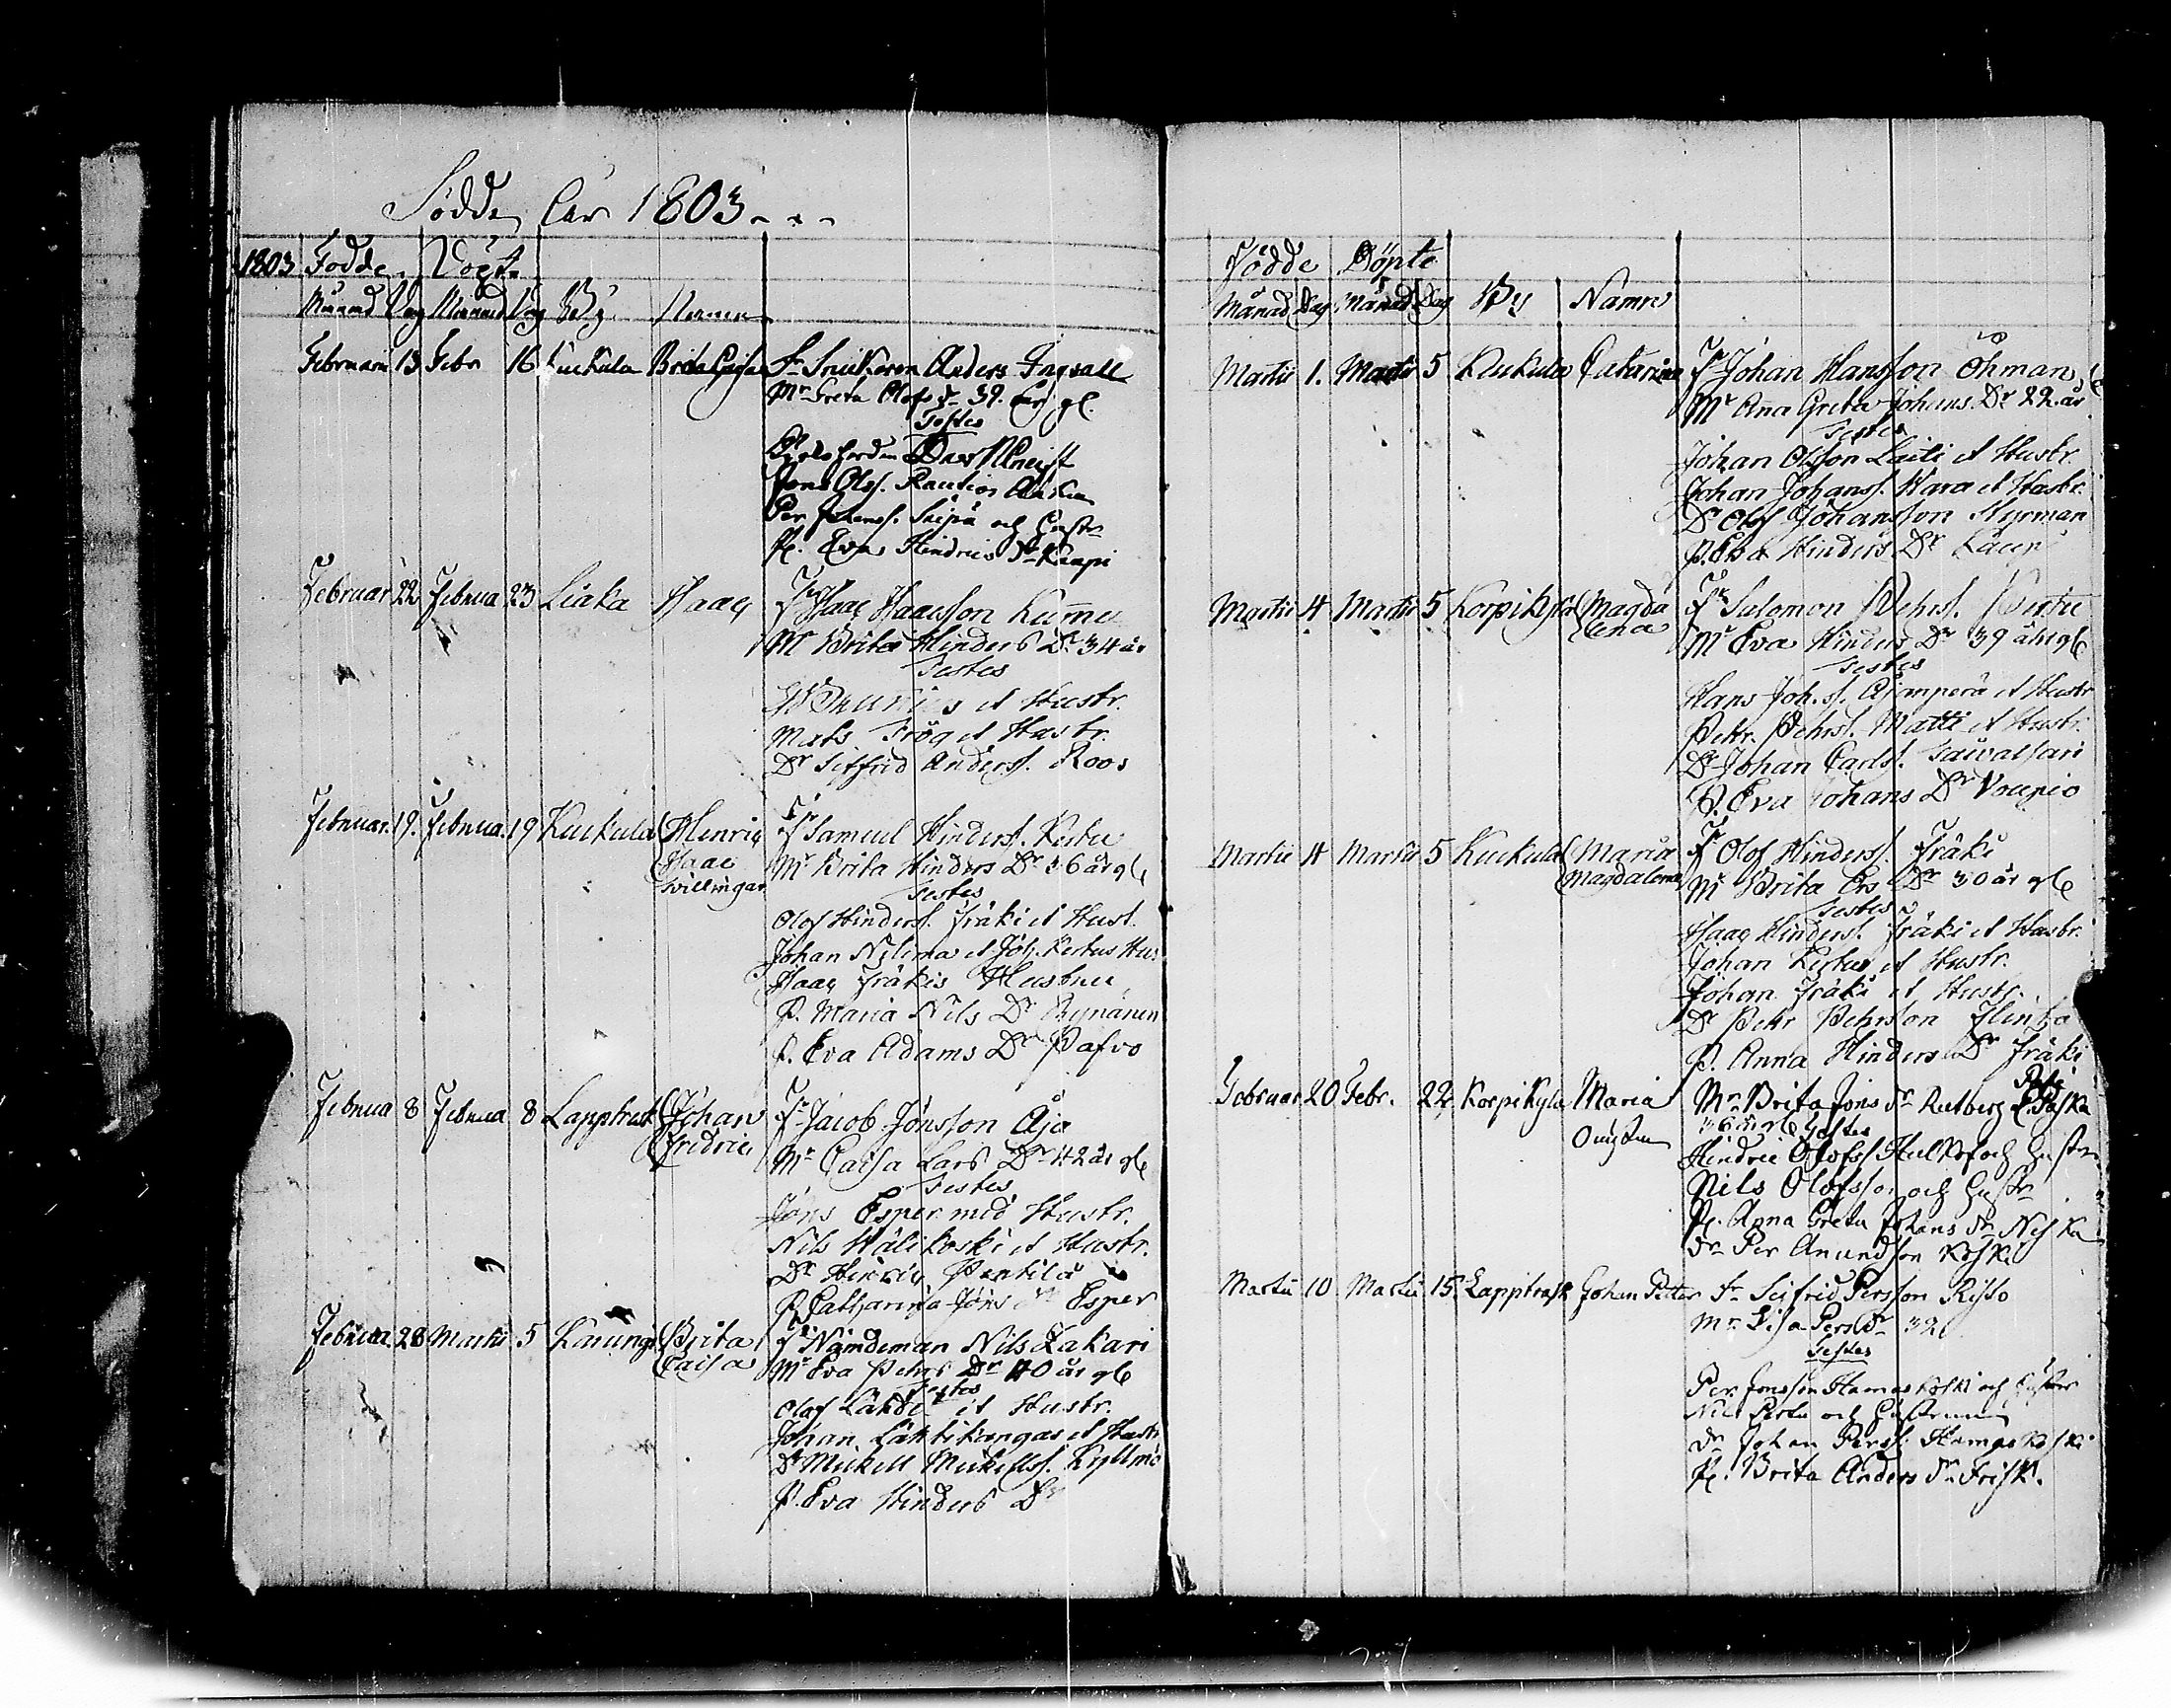 Födde Åar 1803
1803 Födde Döpte
Månad Dag Månad Dag By Namn
Februari 13 Febr 16 Kuckula Brita Cajsa Fr Snickeren Anders Ingvall
Mr Greta Olofs dr 39 år gl.
Testes
Jons Olss. Rautios Enka
Per Johanss. Saipa och hustr
P. Eva Hindrics dr Kaupi
Februar 22 Februa 23 Liaka Isaac Fr Isaac Isacsson Kumu
Mr Brita Hinders Dr 34 år
Testes
et Hustr.
Mats Frög et Hustr.
Dr Sitfrid Anderss. Roos
Februar. 19. Februa. 19 Kuckula Henric Fr Samuel Hinderss. Kertu
Isaac Mr Brita Hinders Dr 36 år gl
tvillingar Testes
Olof Hinderss. Fräki et Hust.
Johan Nylima et Joh. Kertus Hus
Isaac Fräkis Hustru
P. Maria Nils Dr Rynänen
P. Eva Adams Dr Pafvo
Februa 8 Februa 8 Lapptresk Johan Fr Jacob Jönsson Äja
Fridric Mr Caisa Lars Dr 42 år gl
Testes
Jöns Esper med Hustr.
Nils Wälikoski et Hustr.
Dr Henric Pentilä
P. Catharina Jöns Dr Esper
Februa. 28 Martii 5 Karungi Brita Fr Nämdeman Nils Lakari
Caisa Mr Eva Pehrs Dr 40 år gl
Testes
Olof Lahde et Hustr.
Johan Läktikangas et Hustr
Dr Mickell Mickellss. Kyllmä
P. Eva Hinders Dr
Födde Döpte
Månad Dag Månad Dag By Namn
Martii 1. Martii 5 Kuckula Catarina Fr Johan Hansson Öhman
Mr Ana Greta Johans Dr 22. år
Testes
Johan Olsson Laiti et Hustr.
Johan Johanss. Wara et Hustr.
Dr Olof Johansson Nyman
P. Eva Hinders Dr
Martii 4 Martii 5 Korpikylä Magda Fr Salomon Pehrss. Kertu
lena Mr Eva Hinders Dr 39 års gl
Testes
Hans Joh.s. Ajmperä et Hustr
Petter Pehrss. Matti et Hustr.
Dr Johan Carlss. Taivalsari
P. Eva Johans Dr Voupio
Martii 4 Martii 5 Kuckula Maria Fr Olof Hinderss. Fräki
Magdalena Mr Brita Ers Dr 30 år gl
Testes
Isaac Hinderss. Fräki et Hustr.
Johan Kertus et Hustr.
Johan Fräki et Hustr.
Dr Petter Pehrsson
P. Anna Hinders Dr Fräki
Februar 20 Febr. 22 Korpikyla Maria Mr Brita Jons dr Rutberg
36 år gl Testes
Hindric Olofss och hustr
Nils Olofsson och hustr
P. Anna Greta Johans dr Niska
dr Per Anundson Koski
Martii 10 Martii 15 Lapptrask Johan Petter Fr Seifrid Persson Risto
Mr Lisa Pers dr 32
Testes
Per Jonsson Hamas koski och hustr
Nils Perta och hustrun
dr Johan Perss: Hamas koski
P. Brita Anders dr Frisk.